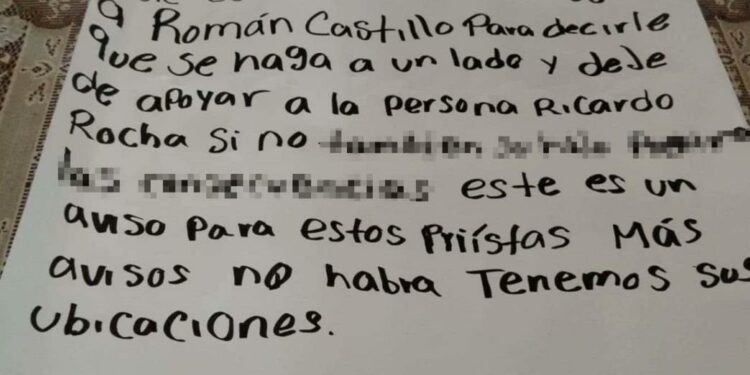 a Román Castillo Para decirle
que se haga a un lado y deje
de apoyar a la persona Ricardo
Rocha si no
este es un
aviso para estos Priístas Más
avisos no habra Tenemos sus
ubicaciones.